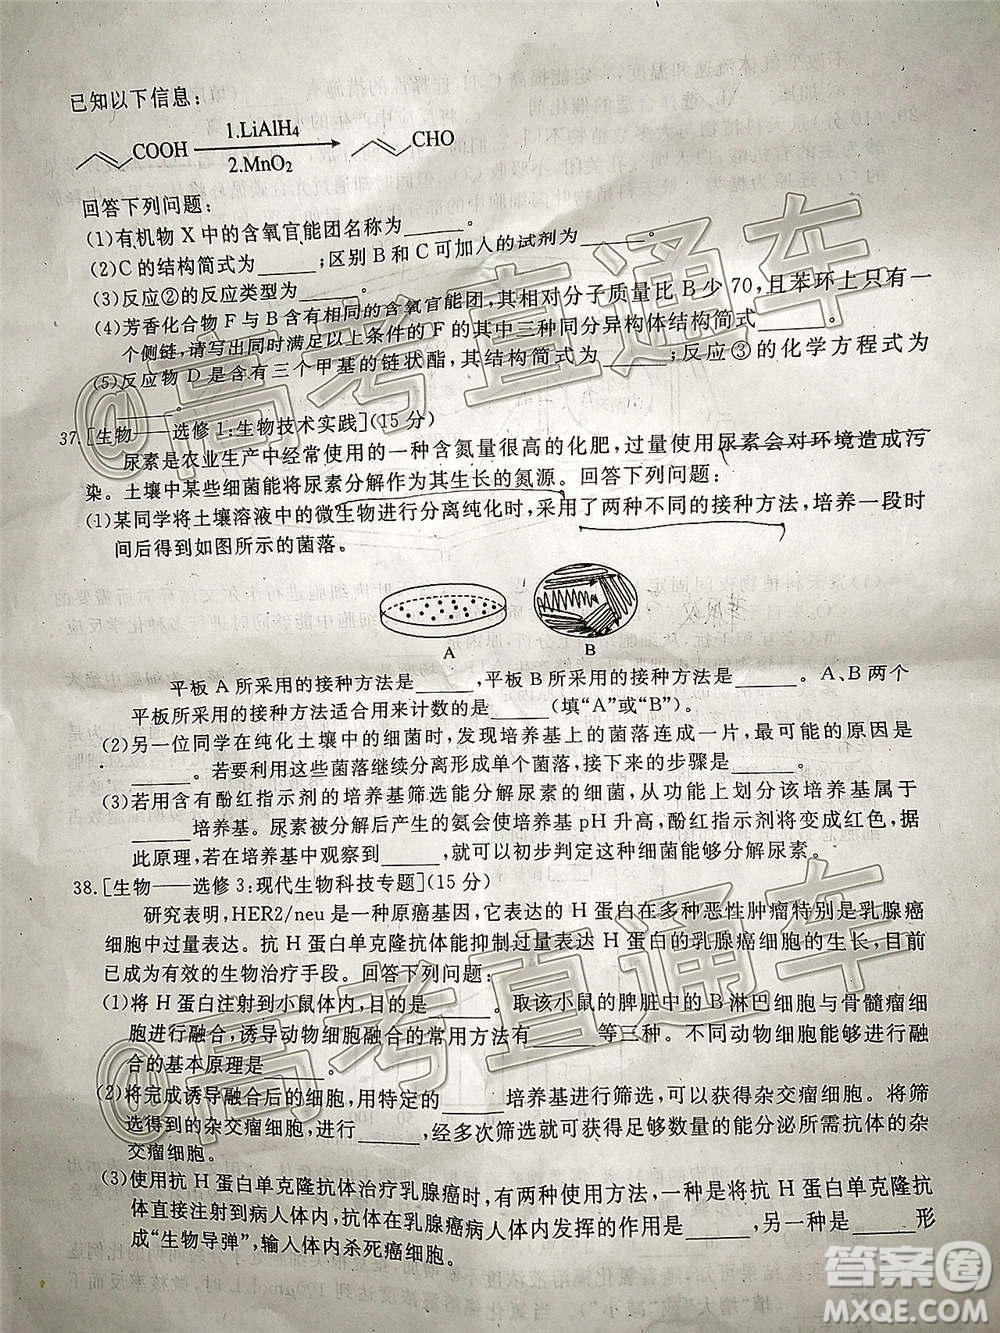 已知以下信息：
COOH 1.LiAlH4 2.MnO2 CHO
回答下列问题：
(1)有机物 X 中的含氧官能团名称为______。
(2)C 的结构简式为______；区别 B 和 C 可加入的试剂为______。
(3)反应②的反应类型为______。
(4)芳香化合物 F 与 B 含有相同的含氧官能团，其相对分子质量比 B 少 70，且苯环上只有一
个侧链，请写出同时满足以上条件的 F 的其中三种同分异构体结构简式______。
(5)反应物 D 是含有三个甲基的链状酯，其结构简式为______；反应③的化学方程式为
______。
37.[生物——选修 1：生物技术实践](15 分)
尿素是农业生产中经常使用的一种含氮量很高的化肥，过量使用尿素会对环境造成污
染。土壤中某些细菌能将尿素分解作为其生长的氮源。回答下列问题：
(1)某同学将土壤溶液中的微生物进行分离纯化时，采用了两种不同的接种方法，培养一段时
间后得到如图所示的菌落。
A B
平板 A 所采用的接种方法是______，平板 B 所采用的接种方法是______。A、B 两个
平板所采用的接种方法适合用来计数的是______(填“A”或“B”)。
(2)另一位同学在纯化土壤中的细菌时，发现培养基上的菌落连成一片，最可能的原因是
______。若要利用这些菌落继续分离形成单个菌落，接下来的步骤是______。
(3)若用含有酚红指示剂的培养基筛选能分解尿素的细菌，从功能上划分该培养基属于
______培养基。尿素被分解后产生的氨会使培养基 pH 升高，酚红指示剂将变成红色，据
此原理，若在培养基中观察到______，就可以初步判定该种细菌能够分解尿素。
38.[生物——选修 3：现代生物科技专题](15 分)
研究表明，HER2/neu 是一种原癌基因，它表达的 H 蛋白在多种恶性肿瘤特别是乳腺癌
细胞中过量表达。抗 H 蛋白单克隆抗体能抑制过量表达 H 蛋白的乳腺癌细胞的生长，目前
已成为有效的生物治疗手段。回答下列问题：
(1)将 H 蛋白注射到小鼠体内，目的是______。取该小鼠的脾脏中的 B 淋巴细胞与骨髓瘤细
胞进行融合，诱导动物细胞融合的常用方法有______等三种。不同动物细胞能够进行融
合的基本原理是______。
(2)将完成诱导融合后的细胞，用特定的______培养基进行筛选，可以获得杂交瘤细胞。对筛
选得到的杂交瘤细胞，进行______，经多次筛选，就可获得足够数量的能分泌所需抗体的杂
交瘤细胞。
(3)使用抗 H 蛋白单克隆抗体治疗乳腺癌时，有两种使用方法，一种是将抗 H 蛋白单克隆抗
体直接注射到病人体内，抗体在乳腺癌病人体内发挥的作用是______，另一种是______形
成“生物导弹”，输入病人体内杀死癌细胞。
@高考直通车
@高考直通车
答案圈
MXQE.COM